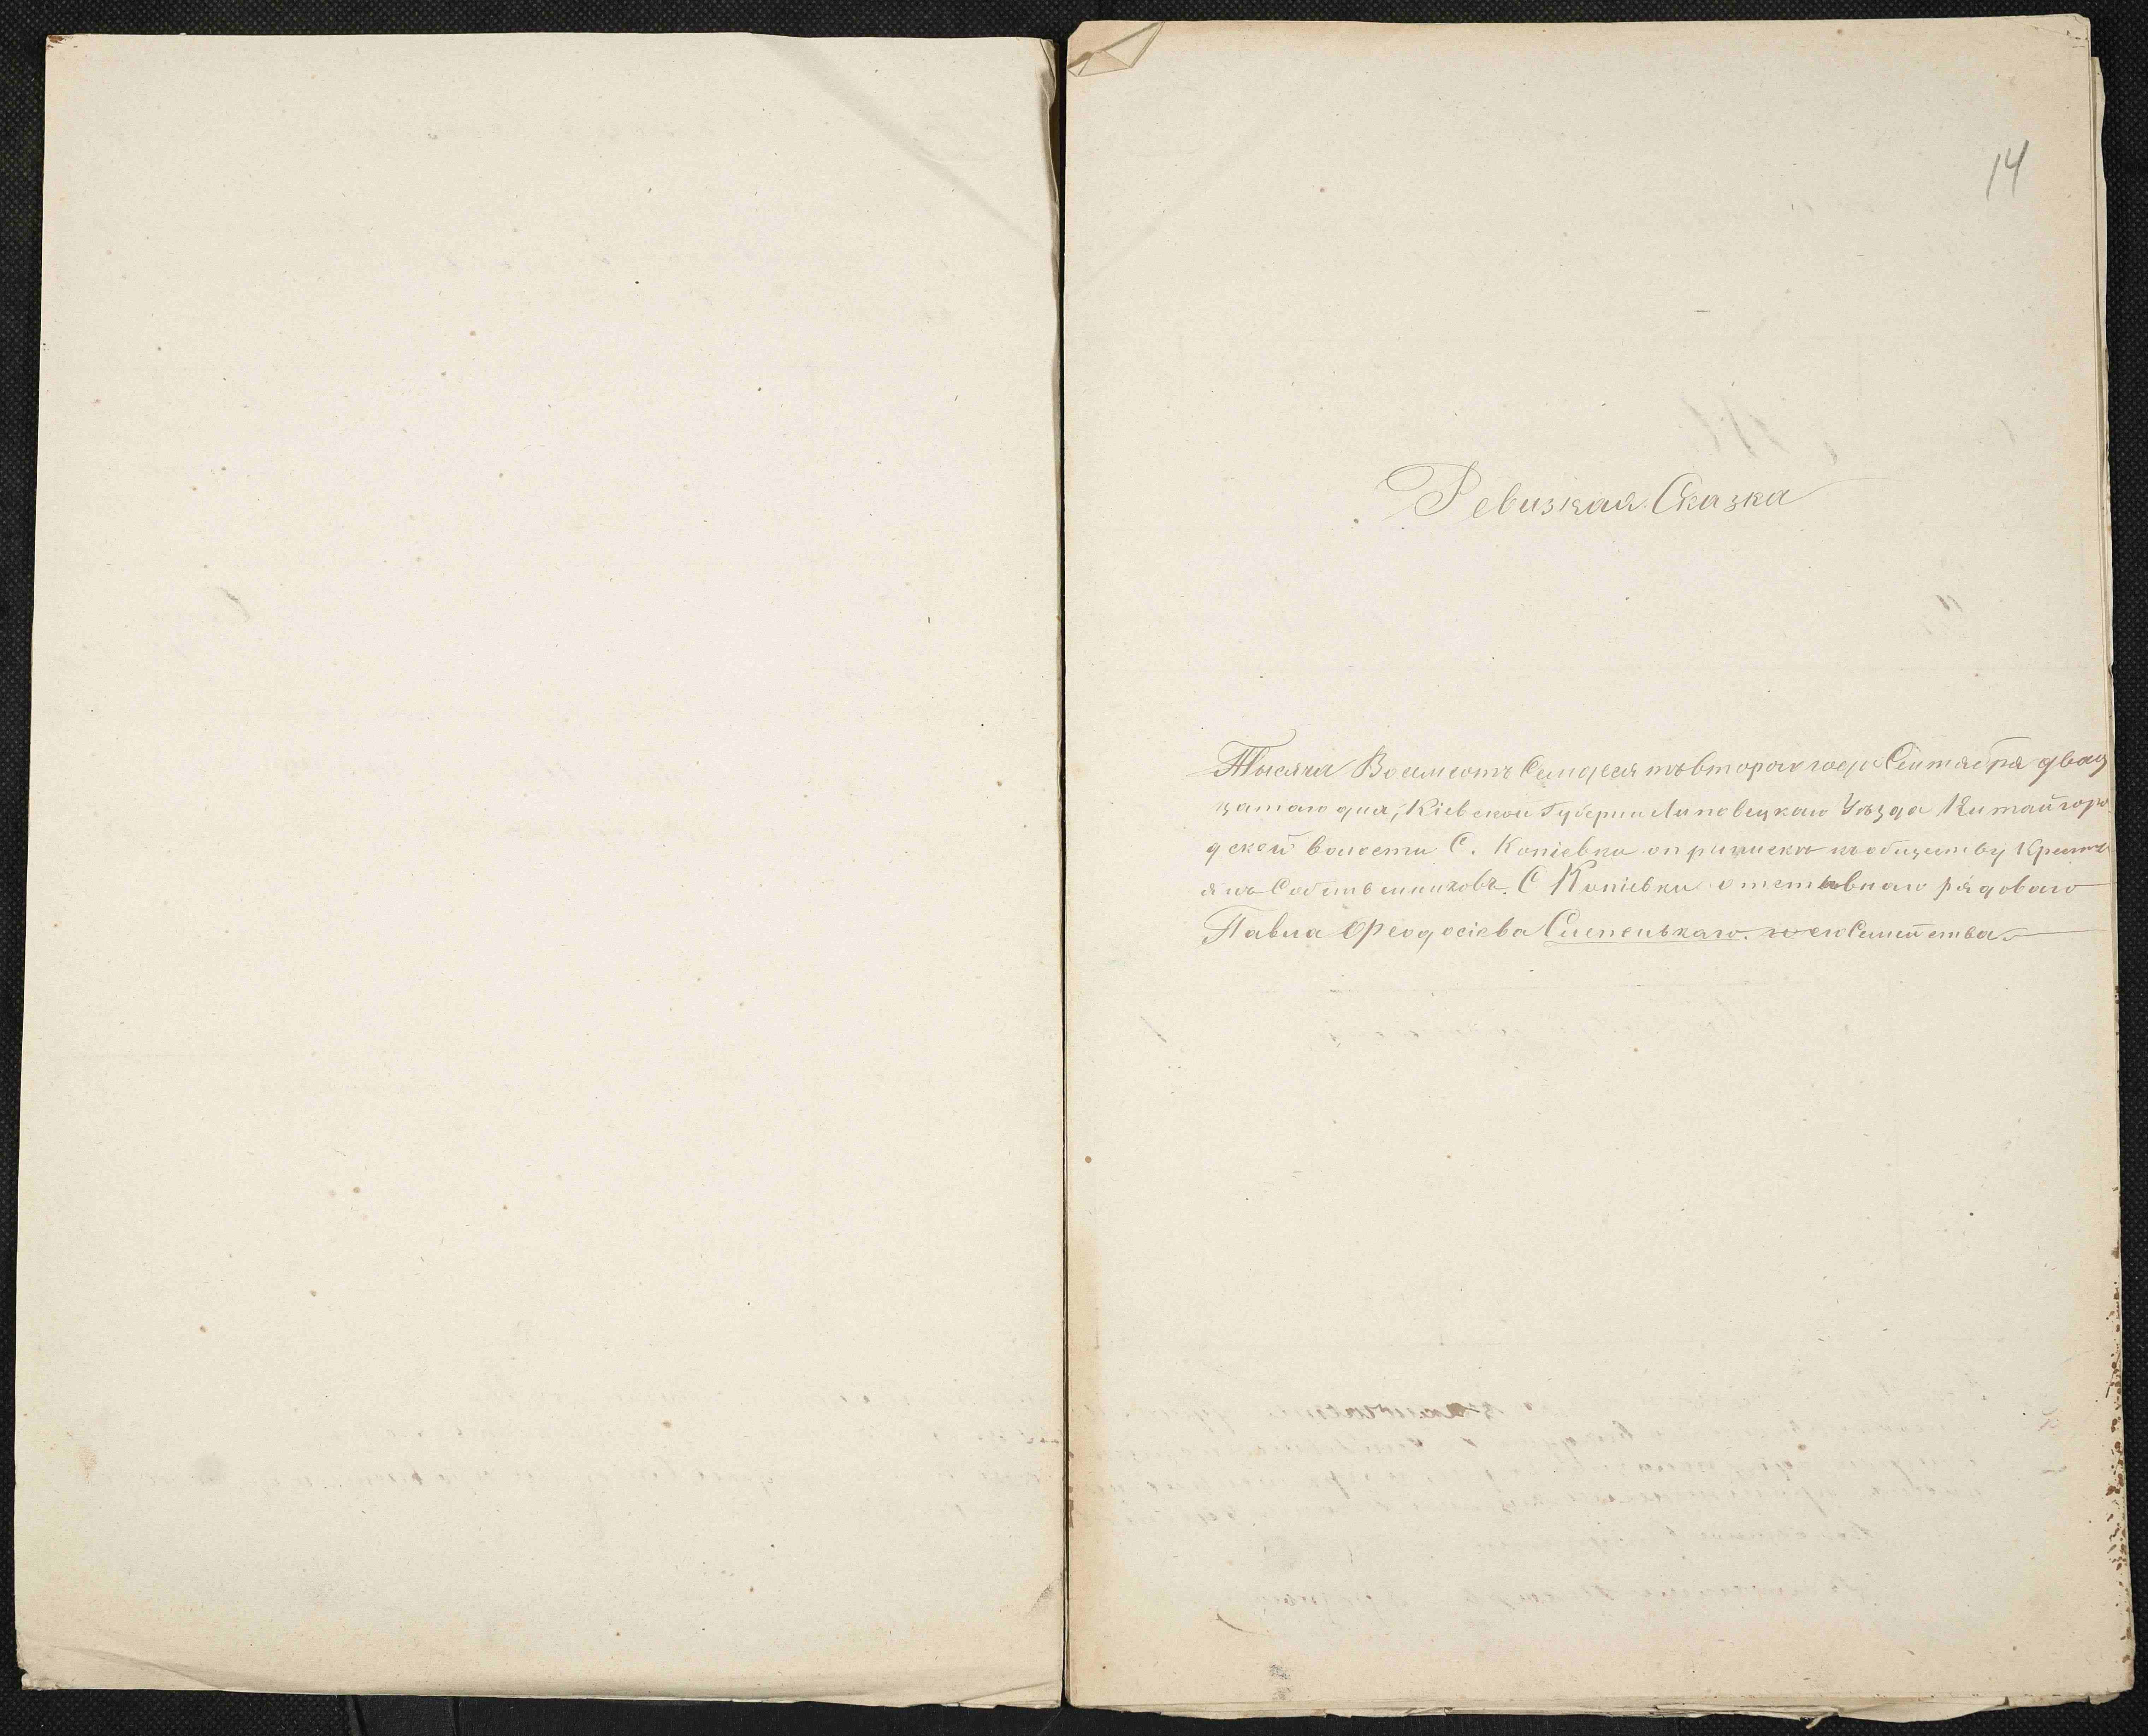 14
Ревизкая Сказка
Тысяча Восемсотъ Семдесятъ втораго года Сентября двад
цатаго дня, Кіевской Губерніи Липовецкаго Уѣзда Китайгоро
дской волости С. Копіевки о припискѣ къ обществу Кресть
янъ Собственниковъ. С Копіевки отставнаго рядоваго
Павла Ѳеодосіева Слепенькаго. и его Семейства